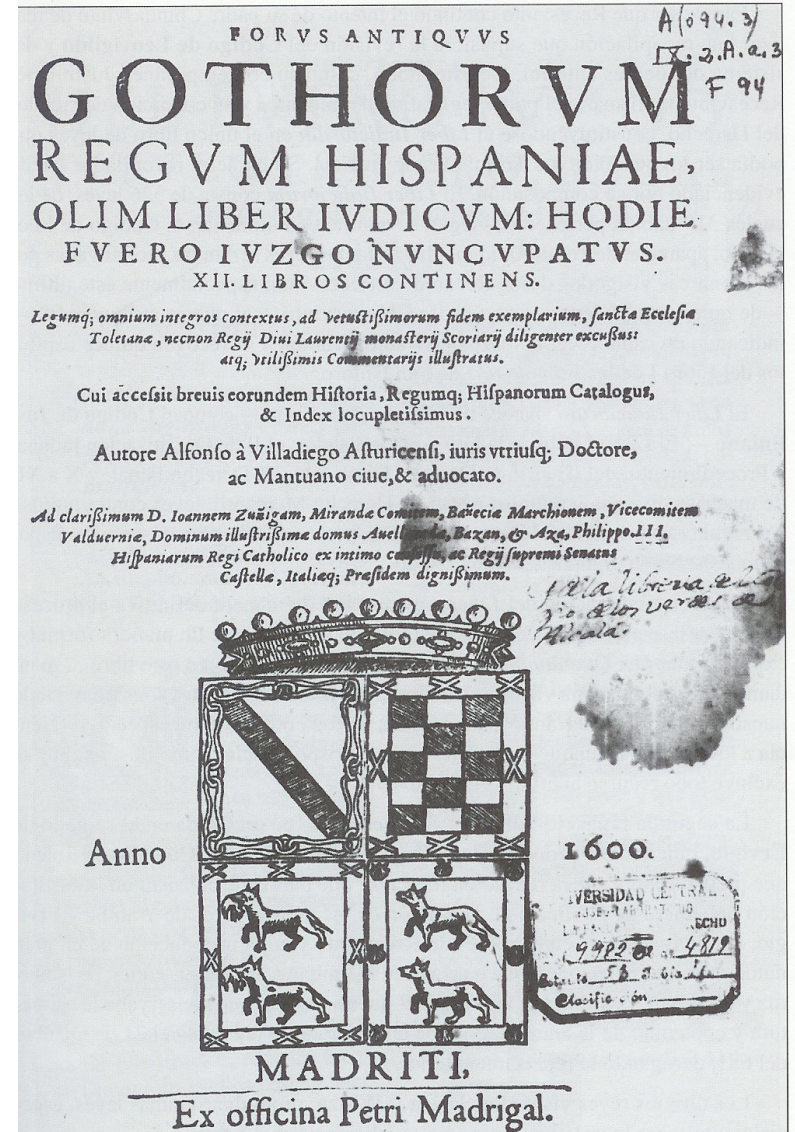 FORVS ANTIQVVS
GOTHORVM
REGVM HISPANIAE,
OLIM LIBER IVDICVM: HODIE
FVERO IVZGO NVNCVPATVS.
XII. LIBROS CONTINENS.
Legumq; omnium integros contextus, ad vetustißimorum fidem exemplarium, sanctæ Ecclesiæ
Toletanæ, necnon Regij Diui Laurentij monasterij Scoriarij diligenter excußus:
atq; vtilißimis Commentarijs illustratus.
Cui accessit breuis eorundem Historia, Regumq; Hispanorum Catalogus,
& Index locupletissimus.
Autore Alfonso à Villadiego Asturicensi, iuris vtriusq; Doctore,
ac Mantuano ciue, & aduocato.
Ad clarißimum D. Ioannem Zuñigam, Mirandæ Comitem, Bañeciæ Marchionem, Vicecomitem
Valduerniæ, Dominum illustrißimæ domus Auellaneda, Bazan, & Aza, Philippo.III.
Hispaniarum Regi Catholico ex intimo consessu, ac Regij supremi Senatus
Castellæ, Italiæq; Præsidem dignißimum.
A(094.3)
IX.2.A.a.3
F 94
de la libreria de
de los verdes de
Alcalá.
Anno 1600.
VERSIDAD CENTRAL
ECHO
9982 4819
58
Clasificación
MADRITI,
Ex officina Petri Madrigal.